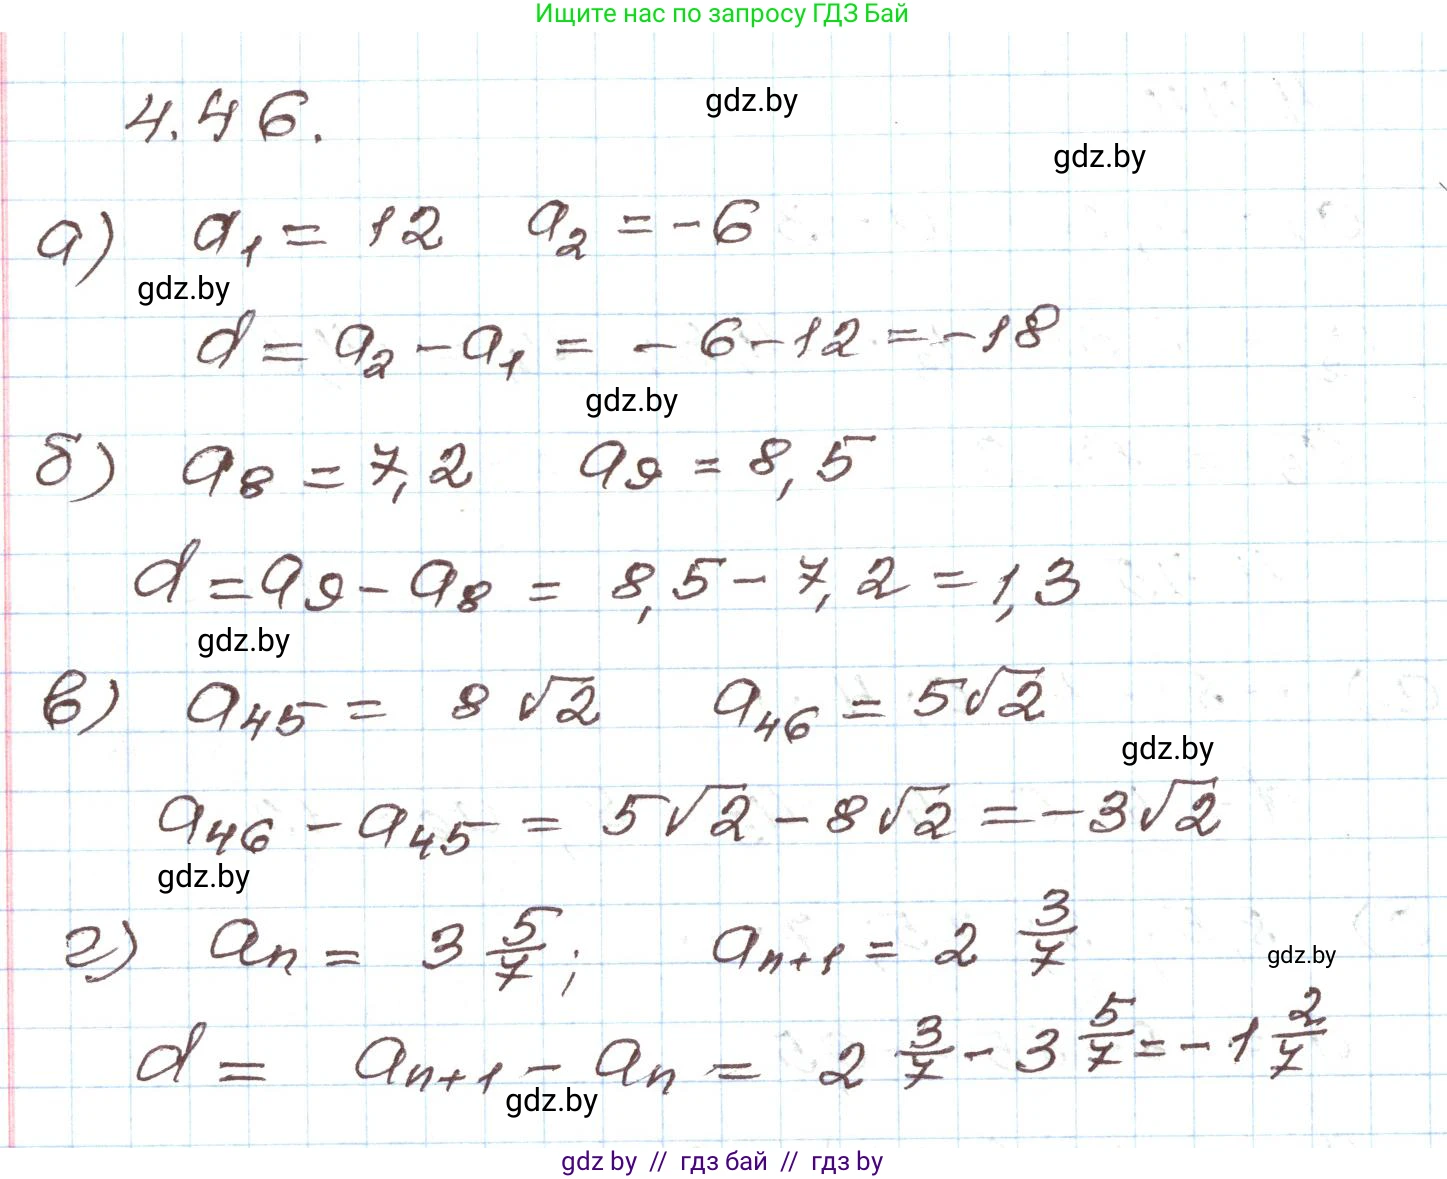 Ищите нас по запросу ГДЗ Бай
4.46.
gdz.by
gdz.by
а) a₁ = 12 a₂ = -6
gdz.by
d = a₂ - a₁ = - 6 - 12 = -18
gdz.by
б) a₈ = 7,2 a₉ = 8,5
d = a₉ - a₈ = 8,5 - 7,2 = 1,3
gdz.by
в) a₄₅ = 8√2 a₄₆ = 5√2
gdz.by
a₄₆ - a₄₅ = 5√2 - 8√2 = -3√2
gdz.by
г) aₙ = 3 5/7; aₙ₊₁ = 2 3/7
gdz.by
d = aₙ₊₁ - aₙ = 2 3/7 - 3 5/7 = -1 2/7
gdz.by
gdz by // гдз бай // гдз by